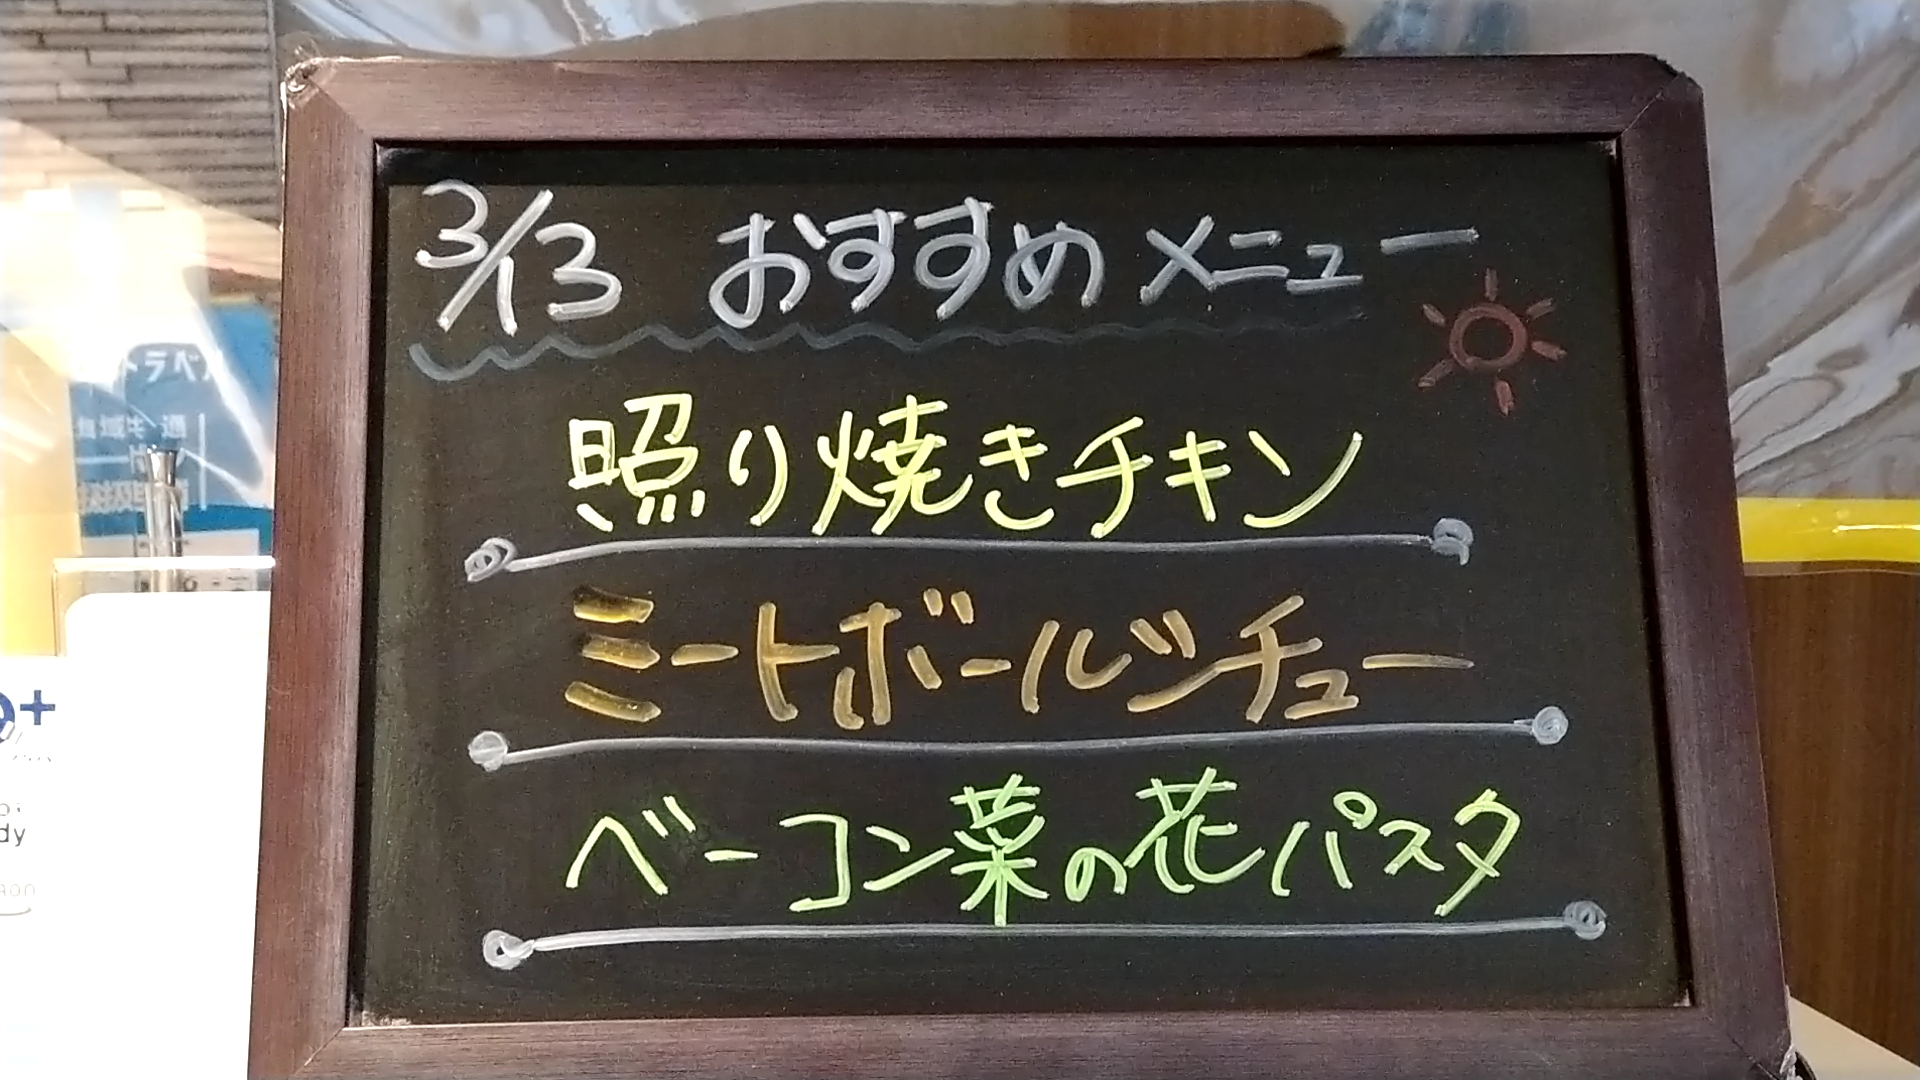 3/13 おすすめメニュー
照り焼きチキン
ミートボールシチュー
ベーコン菜の花パスタ
トラベル
dy